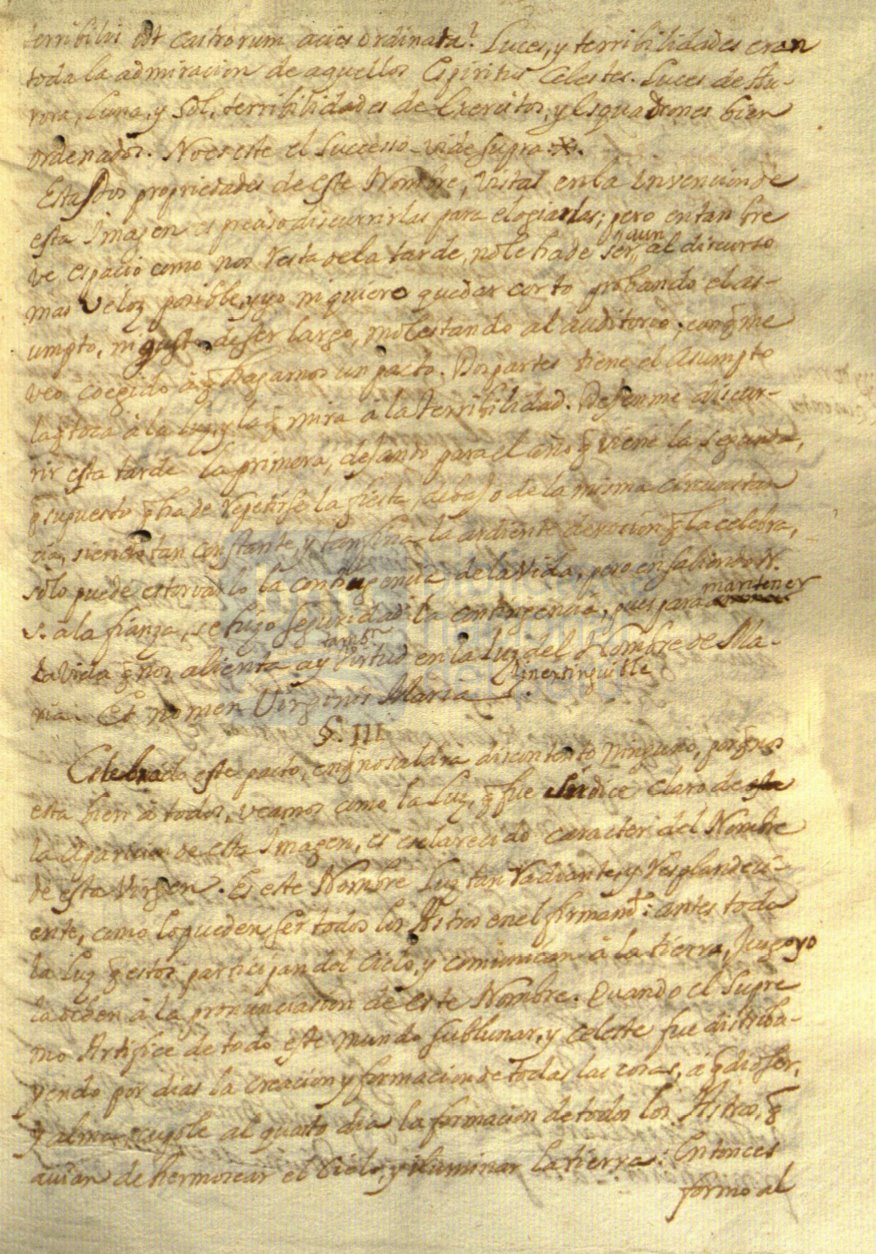 terribilis ut castrorum acies ordinata? Luces, y terribilidades eran
toda la admiracion de aquellos Espiritus Celestes. Luces de Au-
rora, Luna, y Sol, terribilidades de Exercitos, y Esquadrones bien
ordenados. No es este el Successo vide supra
Estas dos propriedades de este Nombre, vistas en la invencion de
esta Imagen es preciso discurrirlas para elogiarlas; pero en tan bre
ve espacio como nos resta de la tarde, no le ha de ser, q aun, al discurso
mas veloz posible, y yo ni quiero quedar corto probando el as-
umpto, ni gusto de ser largo, molestando al auditorio; conq̃ me
veo coegido a q̃ hagamos un pacto. Dos partes tiene el Asumpto
la q̃ toca à la luz, y la q̃ mira a la terribilidad. Desenme discur-
rir esta tarde la primera, dejando para el año q̃ viene la segunda,
q̃ supuesto q̃ ha de repetirse la fiesta, debajo de la misma circunstan
cia, siendo tan constante, y tan fina la ardiente devocion q̃ la celebra,
solo puede estorvarlo la contingencia de la vida, pero en saliendo N.
S. a la fianza, se hizo seguridad la contingencia, pues para mantener
la vida q̃ nos alienta ay tambn virtud en la luz del Nombre de Ma-
ria. Et nomen Virginis Maria
§. III.
Celebrado este pacto, en q̃ no saldrà discontento ninguno, porq̃ nos
esta bien a todos, veamos como la Luz, q̃ fue indice claro de
la Aparicion de esta Imagen, es esclarecido caracter del Nombre
de esta Virgen. Es este Nombre Luz tan radiante, y resplandeci-
ente, como lo pueden ser todos los Astros en el firmamto: antes toda
la luz q̃ estos participan del Cielo, y comunican à la tierra, juzgo yo
la deben à la pronunciacion de este Nombre. Quando el Supre
mo Artifice de todo este mundo sublunar, y celeste fue distribu-
yendo por dias la creacion y formacion de todas las cosas, a q̃ dio ser,
y alma cupole al quarto dia la formacion de todos los Astros, q̃
avian de hermosear el Cielo, y iluminar la tierra: Entonces
formo al